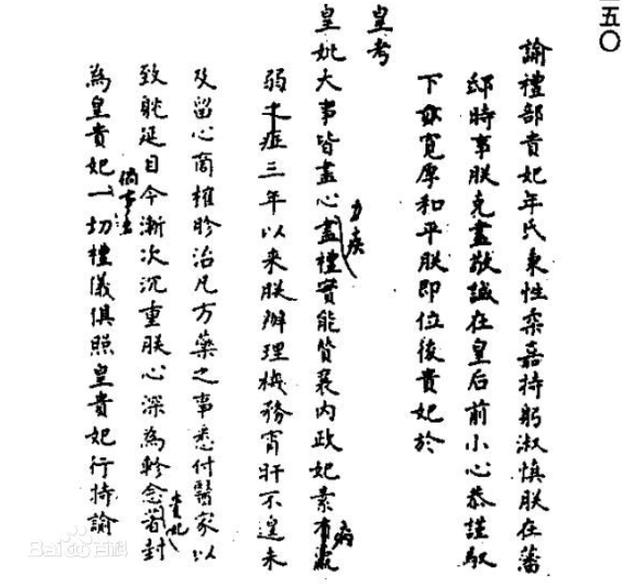 五〇
諭禮部貴妃年氏秉性柔嘉持躬淑慎朕在藩
邸時事朕克盡敬誠在皇后前小心恭謹馭
下亦寬厚和平朕即位後貴妃於
皇考
皇妣大事皆盡心力疾盡禮實能贊襄內政妃素病有羸
弱之症三年以來朕辦理機務宵旰不遑未
及留心商榷胗治凡方藥之事悉付醫家以
致躭延目今漸次沉重朕心深為軫念貴妃著封
為皇貴妃倘事出一切禮儀俱照皇貴妃行特諭
Bai百科